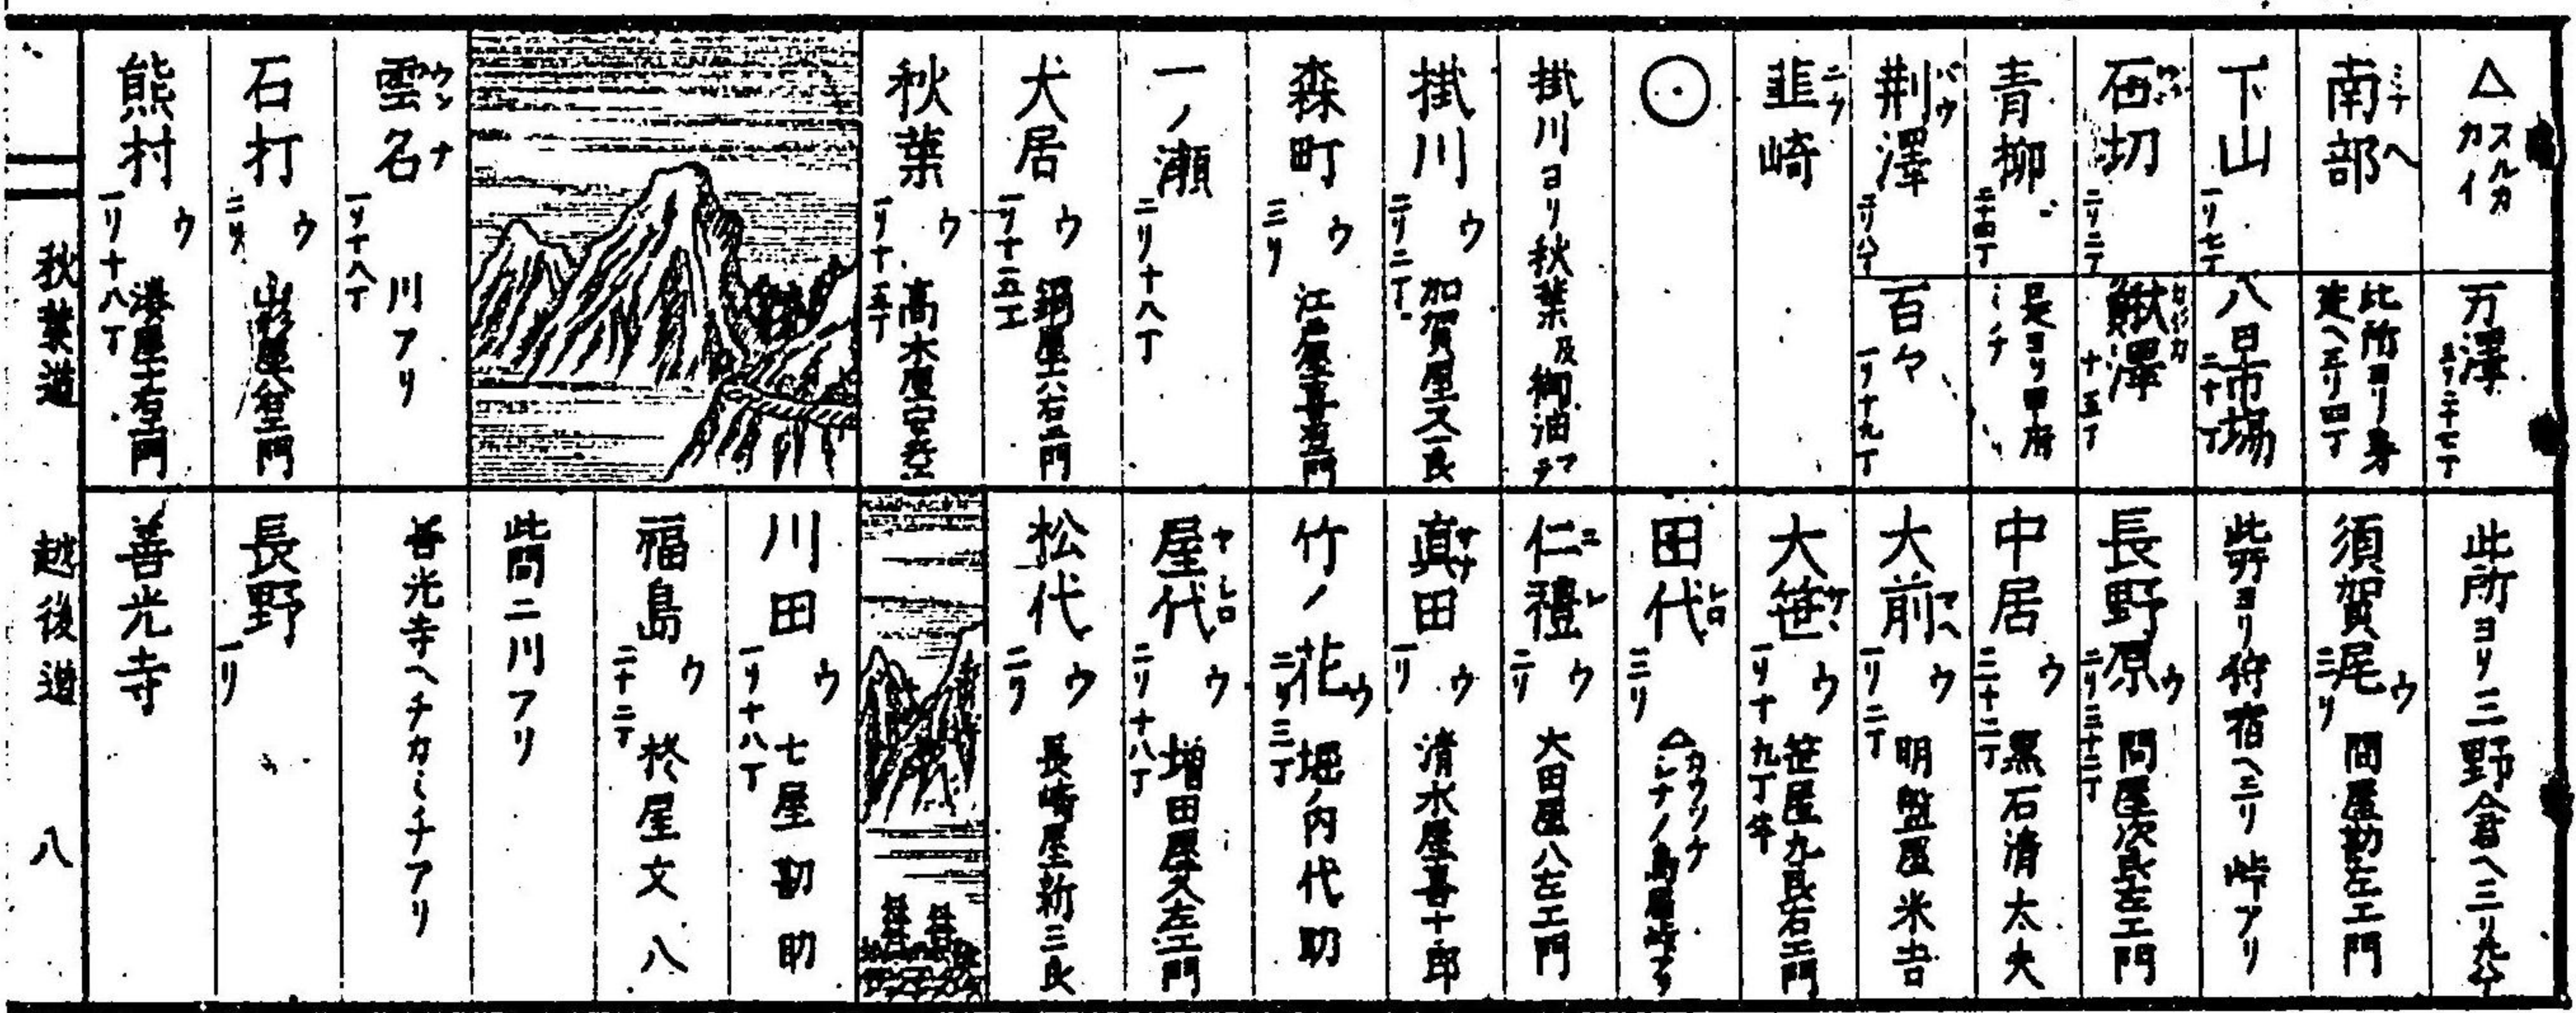 △スルカ
カイ
万澤
三リ二十七丁
南部 ミナヘ
此所ヨリ身
延ヘ三リ四丁
下山
一リ七丁
八日市場
二十丁
石切
二リ二丁
鰍澤
十五丁
青柳
二十四丁
是ヨリ甲府
ミチ
荊澤
二リ八丁
百々
一リ十九丁
韮崎 ニラ
掛川ヨリ秋葉及御油マデ
掛川 ウ
二リ二丁
加賀屋又一良
森町 ウ
三リ
江戸屋喜右エ門
一ノ瀬
二リ十八丁
犬居 ウ
一リ十五丁
鍋屋六右エ門
秋葉 ウ
一リ十五丁
高木屋安兵エ
雲名 ウンナ
一リ十八丁
川アリ
石打 ウ
二リ
熊村 ウ
一リ十八丁
湊屋五右エ門
此所ヨリ三野倉ヘ三リ九丁
須賀尾 ウ
三リ
問屋勘左エ門
此所ヨリ狩宿ヘ三リ 峠アリ
長野原 ウ
二リ三十二丁
問屋次良左エ門
中居 ウ
三十二丁
黒石清太夫
大前 マヘ ウ
一リ二丁
明盤屋米吉
大笹 ウ
一リ十九丁半
笹屋九良右エ門
田代 シロ
三リ
△カウツケ
シナノ鳥居峠アリ
仁禮 ニレ ウ
二リ
大田屋八左エ門
真田 サナ ウ
一リ
清水屋喜十郎
竹ノ花 ウ
二リ三丁
堀ノ内代助
屋代 ヤシロ ウ
二リ十八丁
増田屋久左エ門
松代 ウ
二リ
長崎屋新三良
川田 ウ
一リ十八丁
七屋勘助
福島 ウ
二十二丁
柊屋文八
此間二川アリ
善光寺ヘチカミチアリ
長野
一リ
善光寺
秋葉道
越後道
八